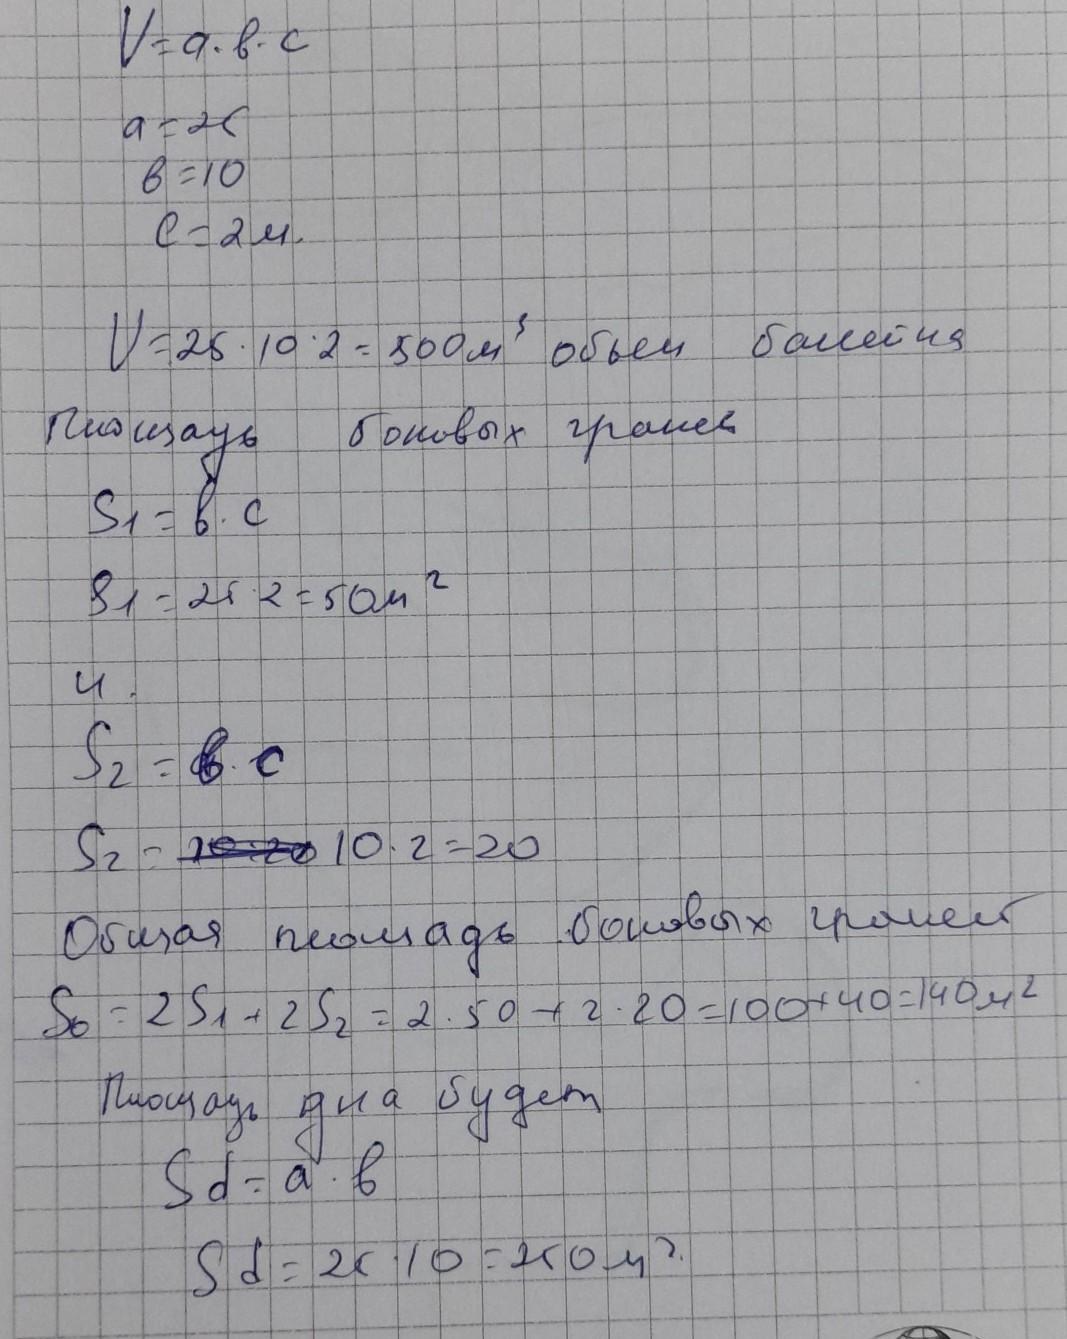 V=a·в·c
a=25
в=10
c=2м.
V=25·10·2=500м³ объем басейна
Площадь боковых граней
S1=в·c
S1=25·2=50м²
и.
S2=в·c
S2=10·2=20
Общая площадь боковых граней
Sб=2S1+2S2=2·50+2·20=100+40=140м²
Площадь дна будет
Sd=a·в
Sd=25·10=250м².